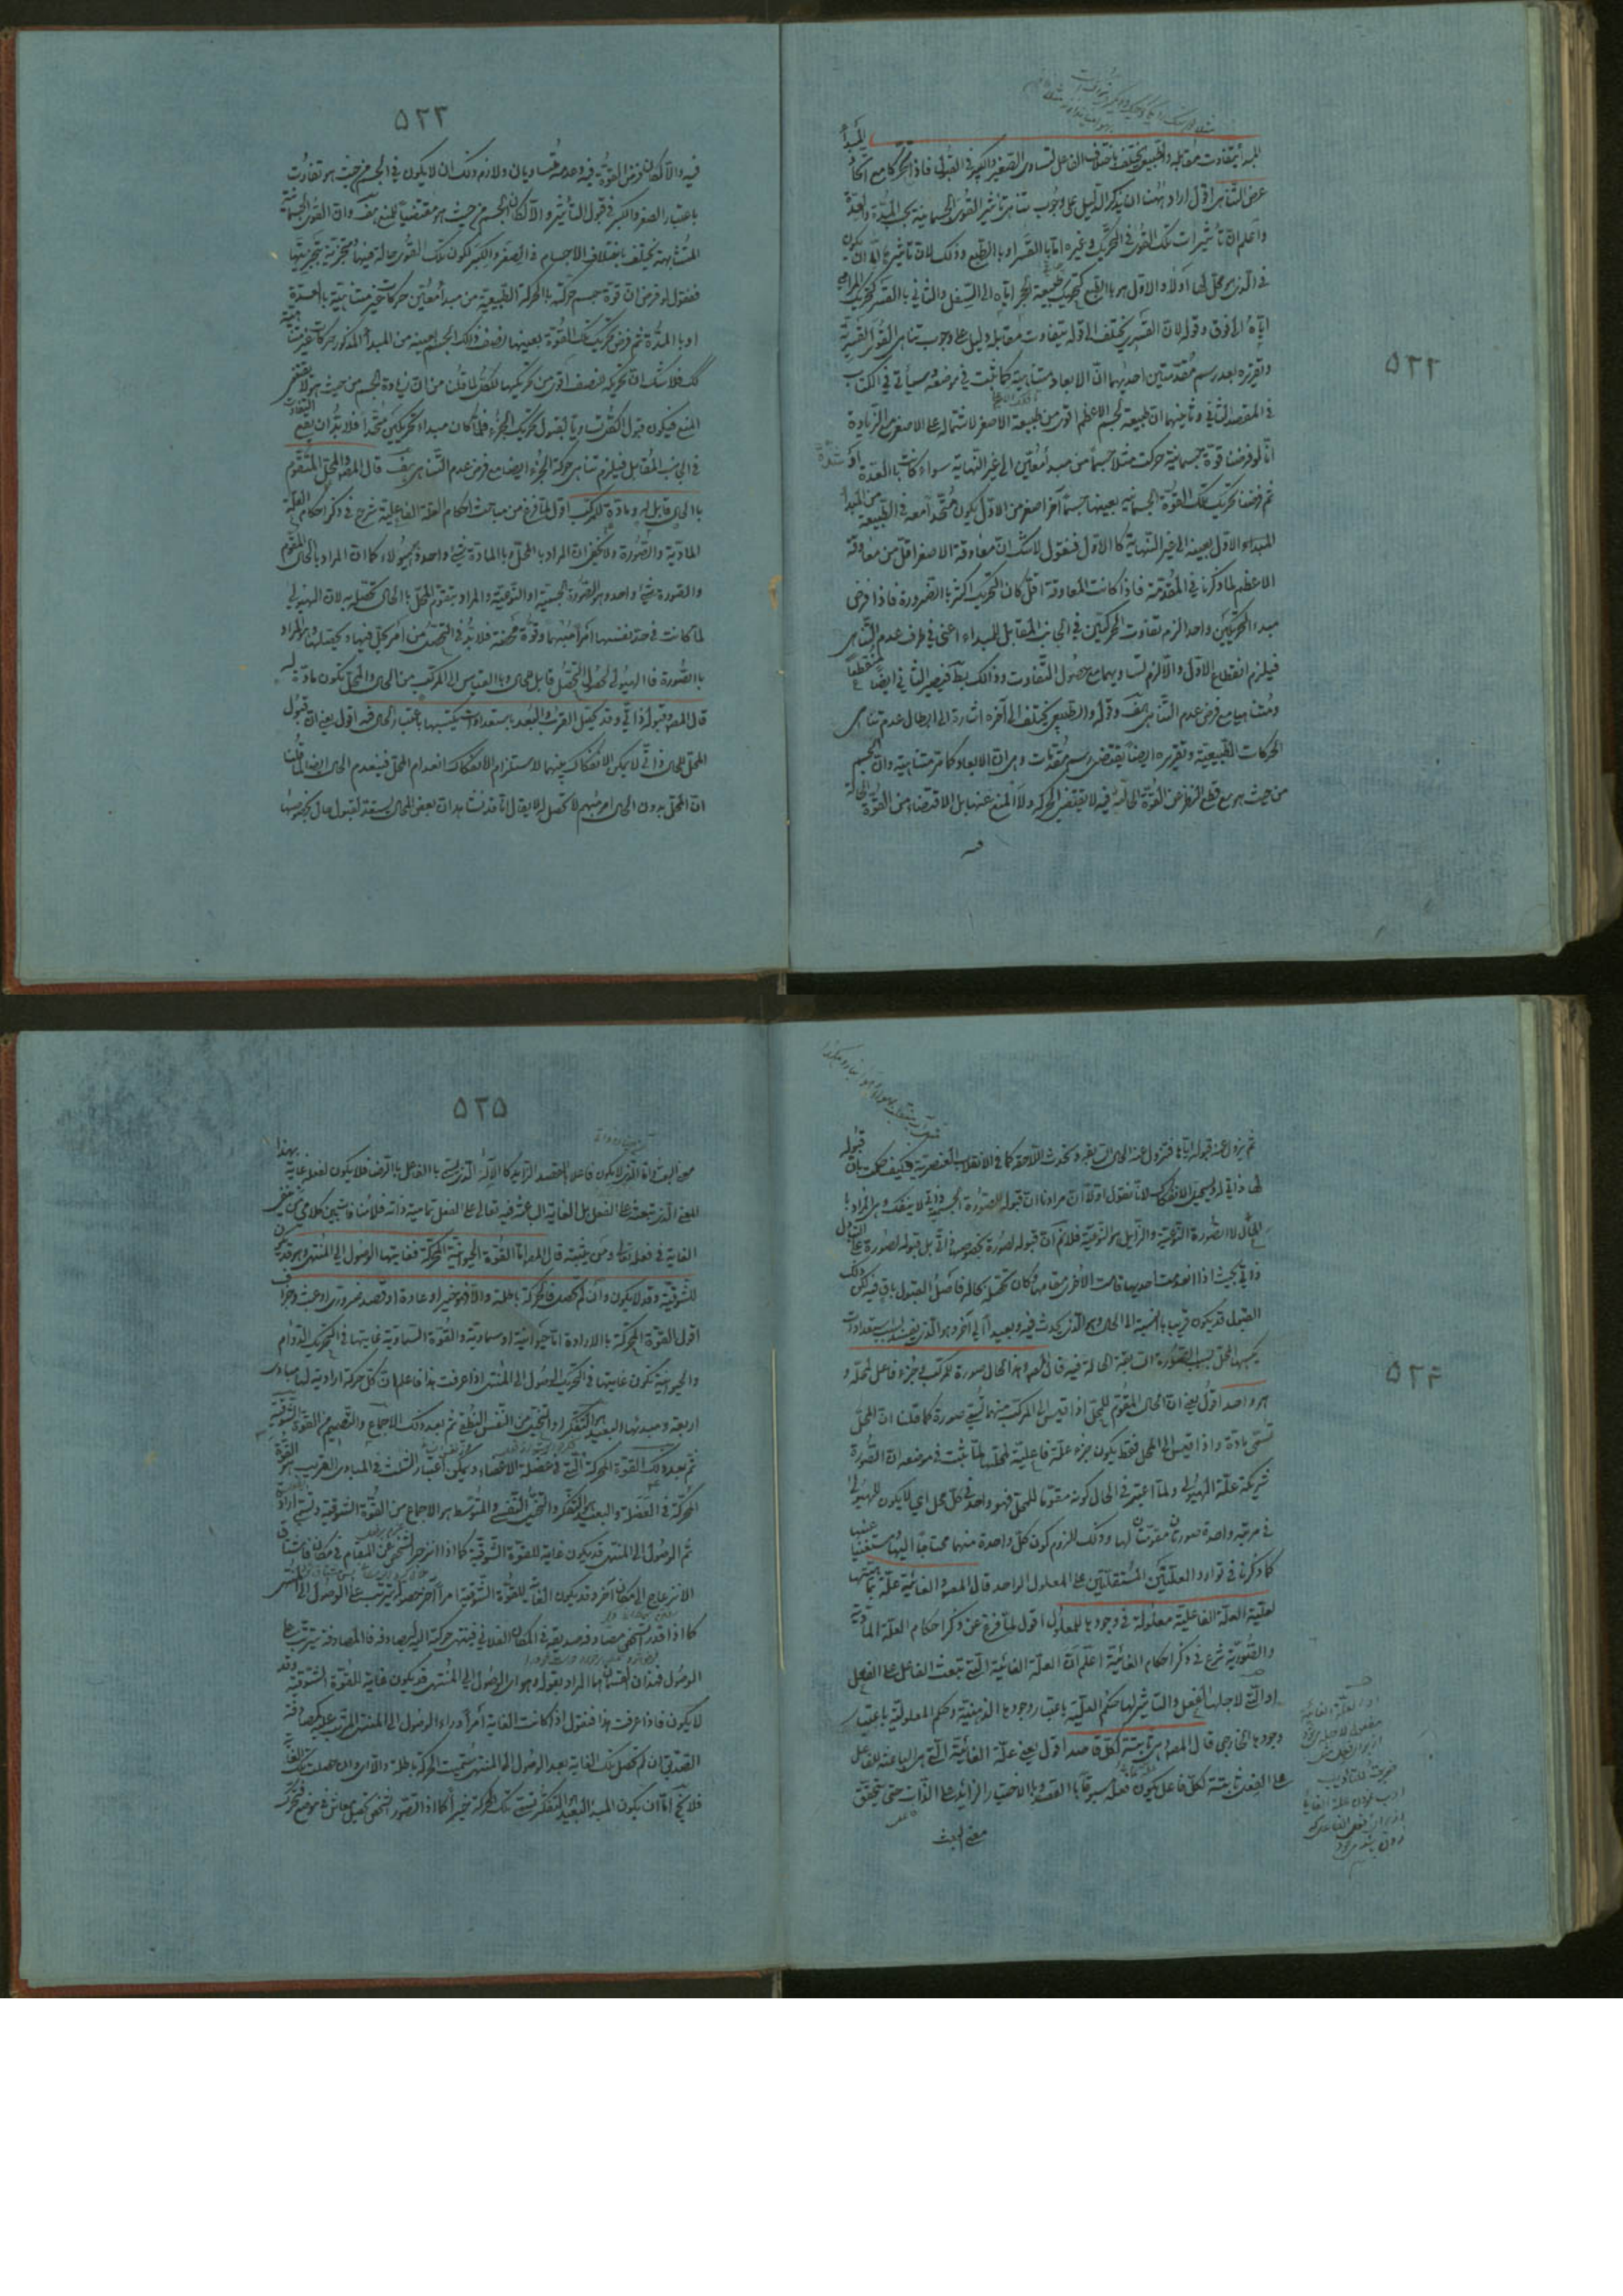 ٥٢٢
المبدأ يتفاوت مقابله والطبيعي يختلف باختلاف الفاعل لتساوي الصغير والكبير في القبول فاذا تحركا مع اتحاد المبدأ
عرض التناهي اقول اراد ههنا ان يذكر الدليل على وجوب تناهي تأثير القوى الجسمانية بحسب المدة والعدة
واعلم ان تأثيرات تلك القوى في التحريك وغيره اما بالقسر او بالطبع وذلك لان تأثيرها اما ان يكون
في الذي هو محل لها او لا والاول هو بالطبع كتحريك طبيعة الحجر اياه الى السفل والثاني بالقسر كتحريك الرامي
اياه الى فوق وقوله لان القسري يختلف الى قوله يتفاوت مقابله دليل على وجوب تناهي القوى القسرية
وتقريره بعد رسم مقدمتين احديهما ان الابعاد متناهية كما ثبت في موضعه وسيأتي في الكتاب
في المقصد الثاني وثانيهما ان طبيعة الجسم الاعظم اقوى من طبيعة الاصغر لاشتماله على الاصغر مع الزيادة
انا لو فرضنا قوة جسمانية حركت مثلا جسما من مبدأ معين الى غير النهاية سواء كانت بالعدة او
ثم فرضنا تحريك تلك القوة الجسمانية بعينها جسما آخر اصغر من الاول يكون متحدا معه في الطبيعة من المبدأ
المبداء الاول بعينه الى غير النهاية كالاول فنقول لا شك ان معاوقة الاصغر اقل من معاوقة
الاعظم لما ذكرنا في المقدمة فاذا كانت المعاوقة اقل كان التحريك اكثر بالضرورة فاذا فرض
مبدا الحركتين واحدا لزم تفاوت الحركتين في الجانب المقابل للمبداء اعني في طرف عدم التناهي
فيلزم انقطاع الاول والا لزم تساويهما مع حصول التفاوت وذلك بط فيصير الثاني ايضا منقطعا
ومتناهيا مع فرض عدم التناهي هف وقوله والطبيعي يختلف الى آخره اشارة الى ابطال عدم تناهي
الحركات الطبيعية وتقريره ايضا يقتضي رسم مقدمات وهي ان الابعاد كما مر متناهية وان الجسم
من حيث هو مع قطع النظر عن القوة الحالة فيه لا يقتضي الحركة ولا المنع عنها بل الاقتضاء من القوة الحالة
٥٢٣
فيه والا لكان فرض القوة فيه وعدمه متساويان ولازم ذلك ان لا يكون في الجسم من حيث هو تفاوت
باعتبار الصغر والكبر في قبول التأثير والا لكان الجسم من حيث هو مقتضيا للمنع هف وان القوى الجسمانية
المتشابهة تختلف باختلاف الاجسام في الصغر والكبر لكون تلك القوى حالة فيها متجزية بتجزيتها
فنقول لو فرض ان قوة جسم حركته بالحركة الطبيعية من مبدأ معين حركات غير متناهية بالعدة
او بالمدة ثم فرض تحريك تلك القوة بعينها لنصف ذلك الجسم بعينه من المبدأ المذكور حركات غير متناهية
كك فلا شك ان تحريكه للنصف اقوى من تحريكها للكل لما قلنا من ان زيادة الجسم من حيث هو لا يقتضي
المنع فيكون قبول الكل متساويا لقبول تحريك الجزء فلما كان مبداء تحريكين متحدا فلا بد ان يقع التفاوت
في الجانب المقابل فيلزم تناهي حركة الجزء ايضا مع فرض عدم التناهي هف قال المص والمحل المتقوم
بالحال قابل له ومادة للمركب اقول لما فرغ من مباحث احكام العلة الفاعلية شرع في ذكر احكام العلة
المادية والصورة ولا يخفى ان المراد بالمحل وبالمادة شيء واحد وهي الهيولاء كما ان المراد بالحال المقوم
والصورة شيء واحد وهو الصورة الجسمية او النوعية والمراد بتقوم المحل بالحال تحصله به لان الهيولى
لما كانت في حد نفسها امرا مبهما وقوة محضة فلا بد في التحصل من امر يحل فيها ويحصلها وهو المراد
بالصورة فالهيولى لحصول التحصل قابل للحال وبالقياس الى المركب من الحال والمحل تكون مادة له
قال المص وقبوله ذاتي وقد يحصل القرب والبعد باستعدادات يكتسبها باعتبار الحال فيه اقول يعني ان قبول
المحل للحال ذاتي لا يمكن الانفكاك بينهما لاستلزام الانفكاك انعدام المحل فينعدم الحال ايضا لما قلنا
ان المحل بدون الحال امر مبهم لا تحصل له لا يقال انا قد نشاهد ان بعض المحال يستعد لقبول حال بخصوصها
٥٢٤
ثم يزول عنه قبوله اياها فتزول عنه الحال السابقة وتحدث اللاحقة كما في الانقلاب العنصرية فكيف حكمت بان قبوله
لها ذاتي لا يستحيل الانفكاك لانا نقول اولا ان مرادنا ان قبوله للصورة الجسمية ذاتي لا ينفك وهي المراد
بالحال لا الصورة النوعية والزايل هو النوعية فلا نم ان قبوله لصورة بخصوصها ذاتي بل قبوله لصورة على التبادل
ذاتي بحيث اذا انعدمت احديها قامت الاخرى مقامها وكان تحصله بحاله فاصل القبول باق فيه لكن ذلك
القبول قد يكون قريبا بالنسبة الى الحال وهو الذي يحدث فيه وبعيدا الى آخر وهو الذي يفسد بسبب استعدادات
يكسبها المحل بسبب الصورة السابقة الحالة فيه قال المص وهذا الحال صورة للمركب وجزء فاعل لمحله و
هو واحد اقول يعني ان الحال المقوم للمحل اذا قيس الى المركب منهما تسمى صورة كما قلنا ان المحل
تسمى مادة واذا قيس الى المحل فقط يكون جزء علة فاعلية لمحلها لما ثبت في موضعه ان الصورة
شريكة علة الهيولى ولما اعتبر في الحال كونه مقوما للمحل فهو واحد في كل محل اي لا يكون للهيولى
في مرتبة واحدة صورتان مقومتان لها وذلك للزوم كون كل واحدة منهما محتاجا اليها ومستغنيا عنها
كما ذكرنا في توارد العلتين المستقلتين على المعلول الواحد قال المص والغائية علة بماهيتها
لعلية العلة الفاعلية معلولة في وجودها للمعلول اقول لما فرغ عن ذكر احكام العلة المادية
والصورية شرع في ذكر احكام الغائية اعلم ان العلة الغائية التي تبعث الفاعل على الفعل
او التي لاجلها الفعل والتأثير لها حكم العلية باعتبار وجودها الذهنية وحكم المعلولية باعتبار
وجودها الخارجي قال المص وهي ثابتة لكل قاصد اقول يعني علة الغائية التي هي الباعثة للفاعل
على الفعل ثابتة لكل فاعل يكون فعله مسبوقا بالقصد وبالاختيار الزائد على الذات حتى يتحقق
معنى البعث
٥٢٥
معنى البعث واما الذي لا يكون فاعلا بالقصد الزايد كالآله الذي ليس بالفاعل بالرضا فلا يكون لفعله غاية بهذا
المعنى الذي تبعث على الفعل بل الغاية الباعثة فيه تعالى على الفعل تمامية ذاته فلا منافاة بين كلامي من ينفي
الغاية في فعله تعالى ومن يثبته قال المص اما القوة الحيوانية المحركة فغايتها الوصول الى المنتهى وهو قد يكون
للشوقية وقد لا يكون وان لم تحصل فالحركة باطلة والا فهو خير او عادة او قصد ضروري او عبث وجزاف
اقول القوة المحركة بالارادة اما حيوانية او سماوية والقوة السماوية غايتها في التحريك الدوام
والحيوانية تكون غايتها في التحريك الوصول الى المنتهى اذا عرفت هذا فاعلم ان كل حركة ارادية لها مبادئ
اربعة ومبدئها البعيد هو التفكر او التخيل من النفس الناطقة ثم بعد ذلك الاجماع والتصميم من القوة الشوقية
ثم بعد ذلك القوة المحركة التي في عضلة الاعضاء ويمكن اعتبار الثلث في المبادي القريب هو القوة
المحركة في العضلة والبعيد هو التفكر والتخيل النفسي والمتوسط هو الاجماع من القوة الشوقية وتسمى ارادة
ثم الوصول الى المنتهى قد يكون غاية للقوة الشوقية كما اذا انزجر الشخص عن المقام في مكان فاشتاق
الانزعاج الى مكان آخر وقد يكون الغاية للقوة الشوقية امرا آخر حصوله يترتب على الوصول الى المنتهى
كما اذا قدر الشخص مصادفة صديقه في المكان الفلاني فينتهي حركته اليه ليصادفه فالمصادفة يترتب على
الوصول فهذان القسمان هما المراد بقوله وهو اي الوصول الى المنتهى قد يكون غاية للقوة الشوقية وقد
لا يكون فاذا عرفت هذا فنقول اذا كانت الغاية أمرا وراء الوصول الى المنتهى المترتب عليه كمصادفة
الصديق ان لم تحصل تلك الغاية بعد الوصول الى المنتهى سميت الحركة باطلة والا اي وان حصلت تلك الغاية
فلا يخ اما ان يكون المبدأ البعيد التفكر تسمى تلك الحركة خيرا كما اذا تصور الشخص تحصيل معاش في موضع فتحرك